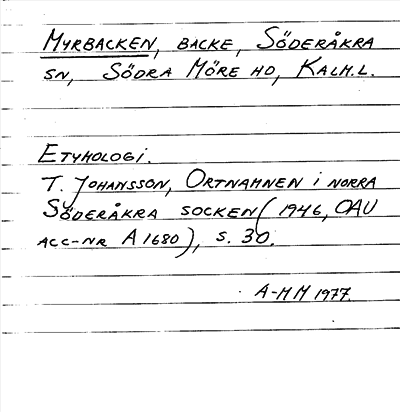 MYRBACKEN, BACKE, SÖDERÅKRA
SN, SÖDRA MÖRE HD, KALM.L.
ETYMOLOGI.
T. JOHANSSON, ORTNAMNEN I NORRA
SÖDERÅKRA SOCKEN (1946, OAU
ACC-NR A1680), S. 30.
A-MM 1977.